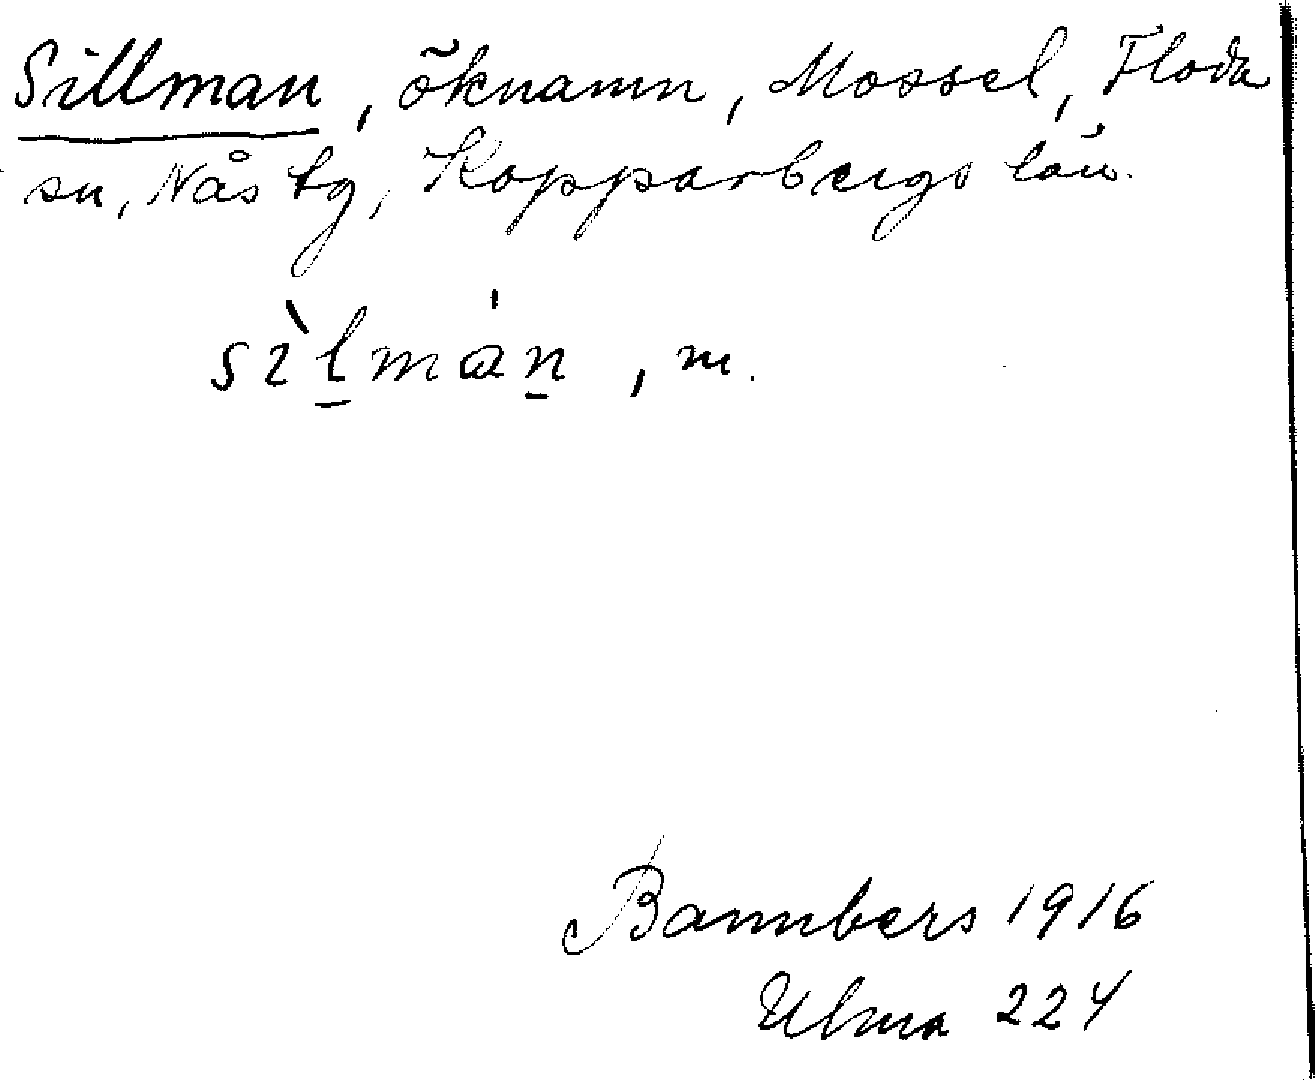 Sillman, öknamn, Mossel, Floda
sn, Nås tg, Kopparbergs län.
sìl̲màn̲, m.
Bannbers 1916
Ulma 224